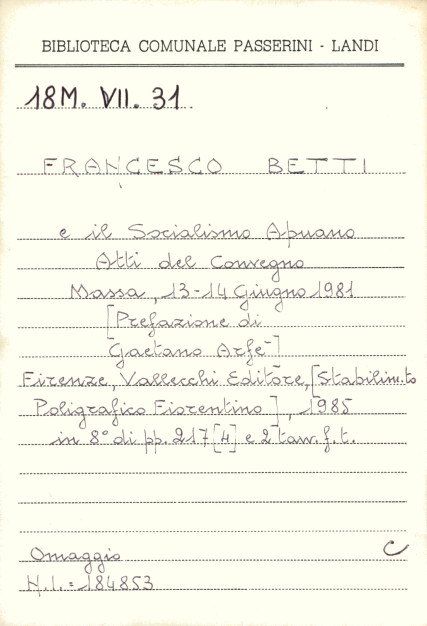 BIBLIOTECA COMUNALE PASSERINI - LANDI
18M. VII. 31
FRANCESCO BETTI
e il Socialismo Apuano
Atti del Convegno
Massa, 13-14 Giugno 1981
[Prefazione di
Gaetano Arfè]
Firenze, Vallecchi Editore, [Stabilim.to
Poligrafico Fiorentino], 1985
in 8° di pp. 217 [4] e 2 tavv. f. t.
Omaggio C
N.I. = 184853